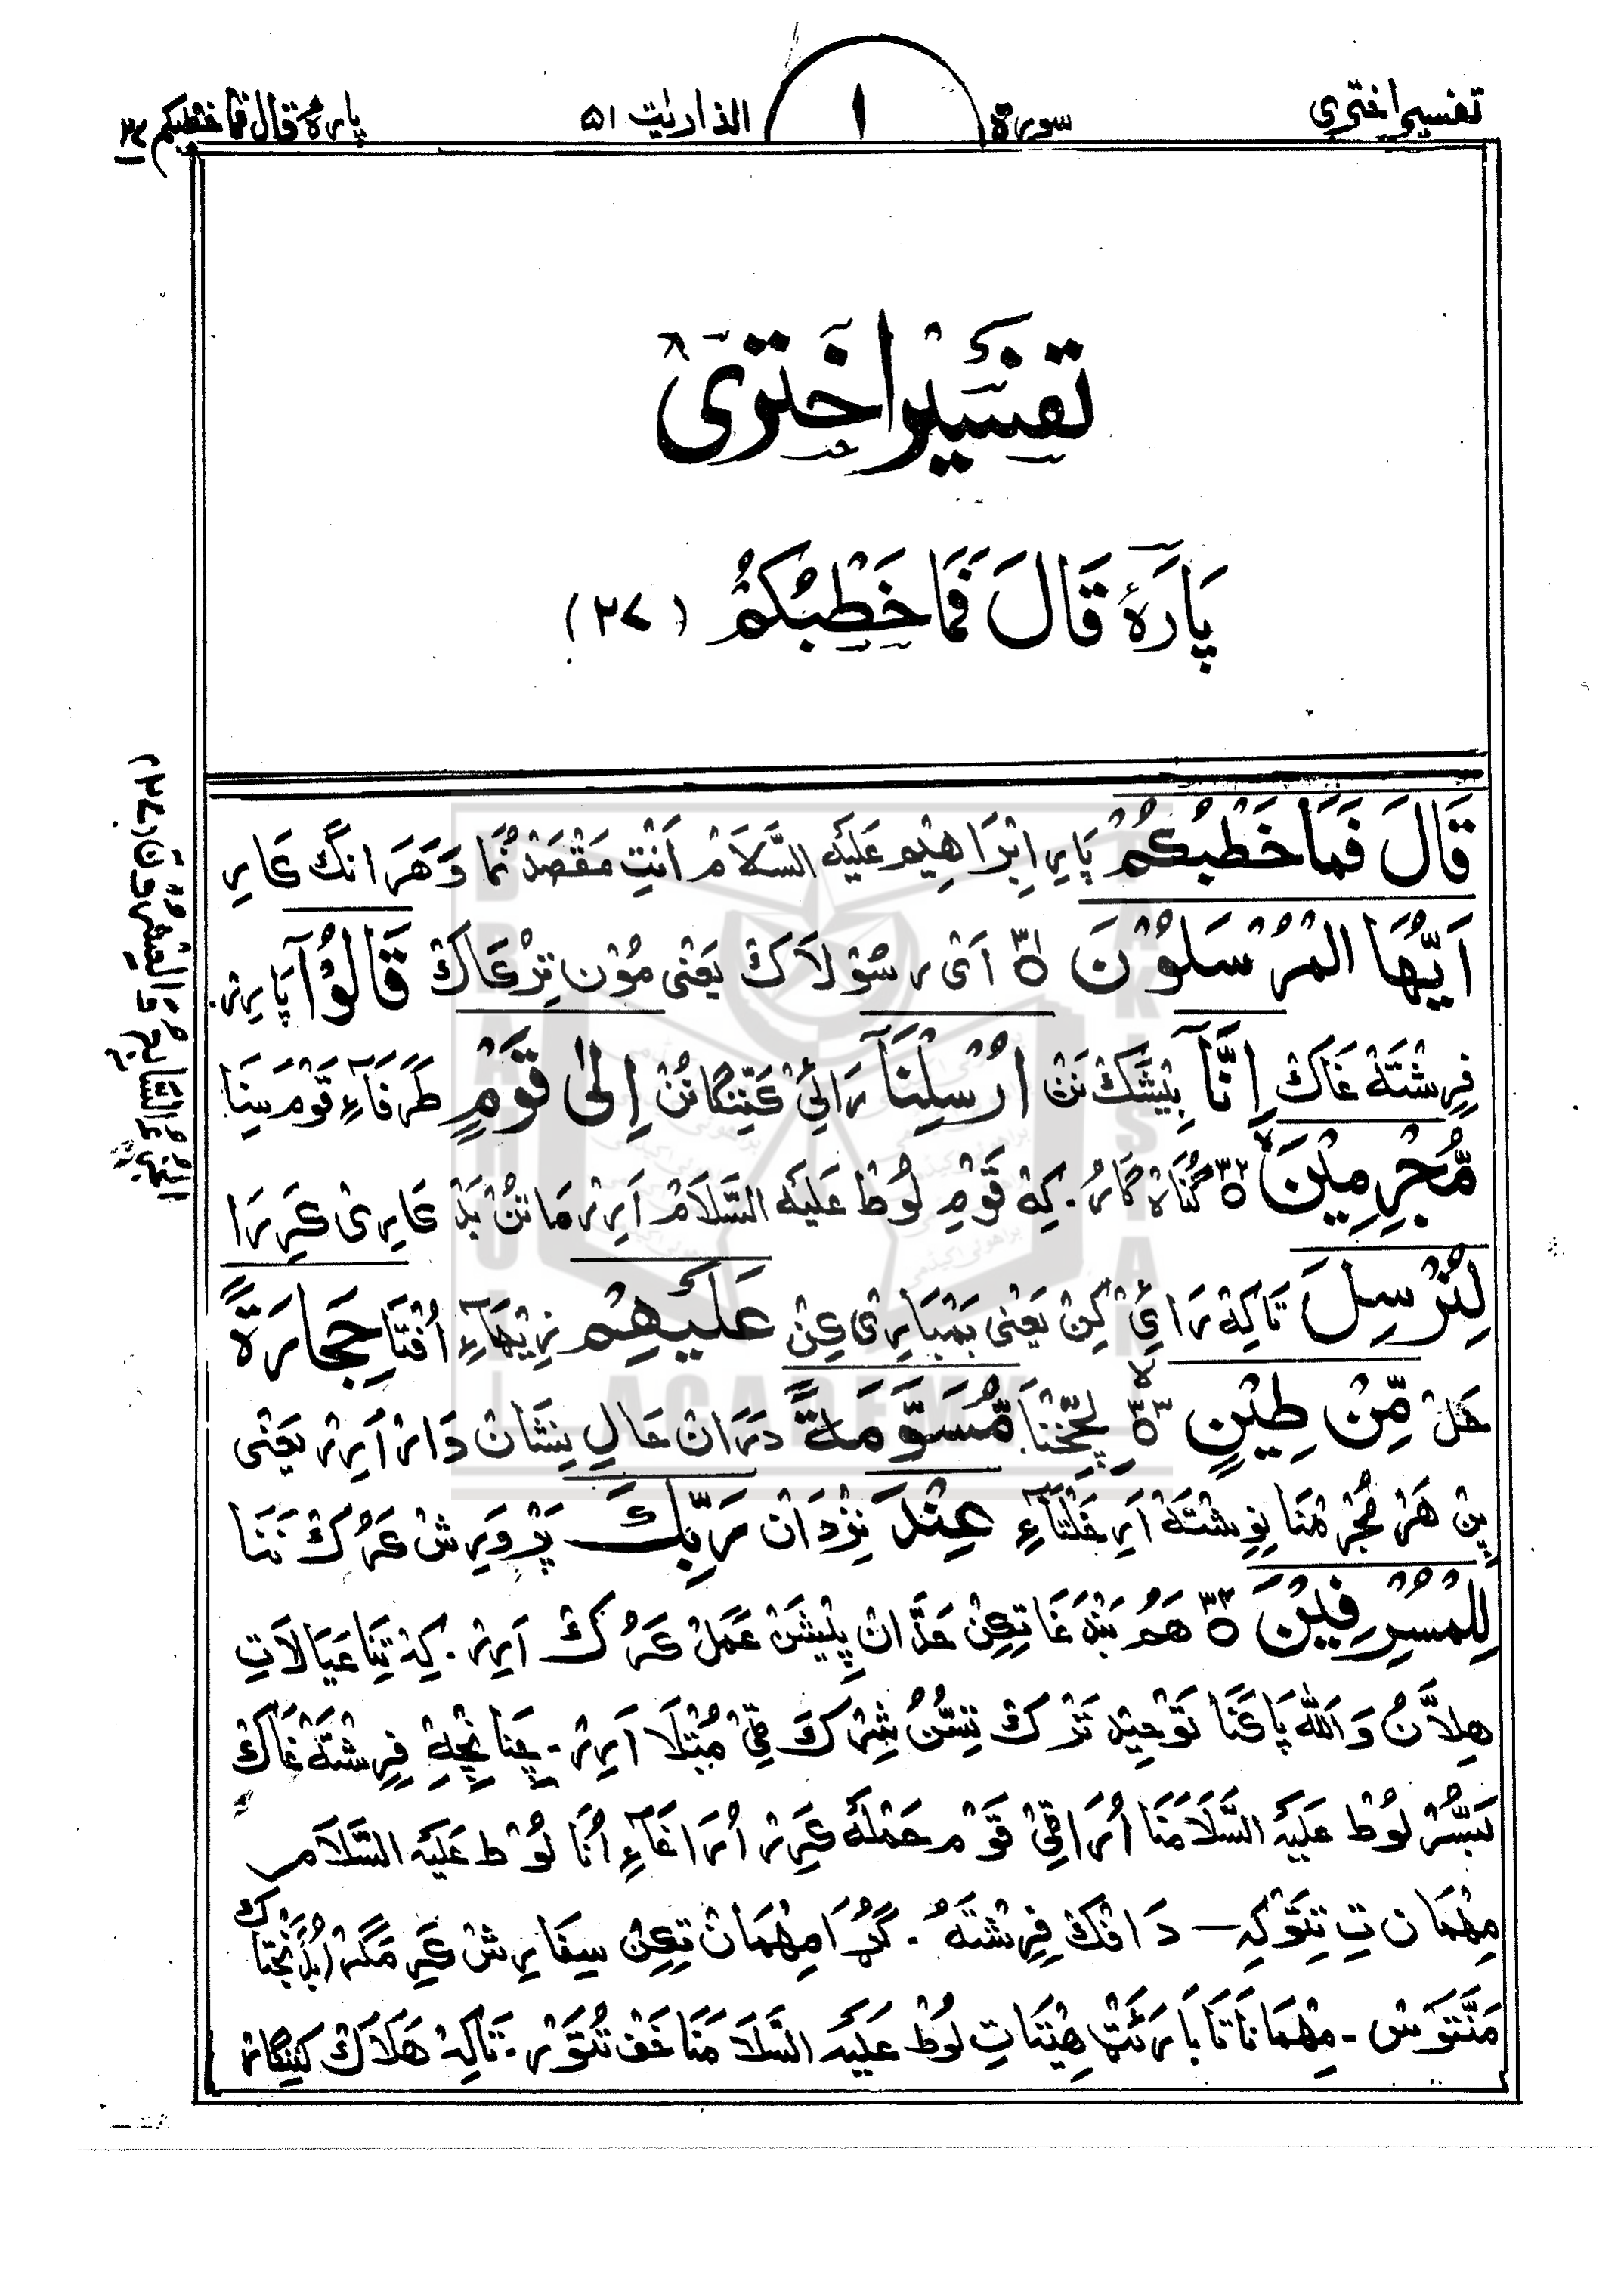 تفسیر اختری سورة ۱ الذاریٰت ۵۱ پارۂ قال فما خطبکم ۲۷
تَفْسِیْرِ اَخْتَرِی
پَارَۂ قَالَ فَمَا خَطْبُکُمْ (۲۷)
قَالَ فَمَا خَطْبُکُمْ پَارِ اِبْرَاهِیْم عَلَیْهِ السَّلَامْ اَنْتِ مَقْصَدْ نُمَا وَهَرَانگ کَارِ
اَیُّهَا الْمُرْسَلُوْنَ ۝۳۱ اَیْ رَسُوْلَاکْ یَعْنٰی مُوْن تِرْکَاکْ قَالُوْٓا پَارِرْ
فِرِشْتَه غَاکْ اِنَّآ بِیْشَکْ نَنْ اُرْسِلْنَآ رَائِیْ کَنِّنْگَانُنْ اِلٰی قَوْمٍ طَرَفَآءِ قَوْم سِنَا
مُّجْرِمِیْنَ ۝۳۲ گُنَاہْ گَارُ. کِهْ قَوْمِ لُوْطْ عَلَیْهِ السَّلَامْ اَرِرْ مَا نُنْ بَدْ کَارِیْ کَرِرَا
لِنُرْسِلَ تَاکِهْ رَائِیْ کِنْ یَعْنٰی بَمْبَارِیْ کِنْ عَلَیْهِمْ زِیْهَآءِ اُفْتَا حِجَارَةً
خَلْ مِّنْ طِیْنٍ ۝۳۳ لِچَّنَا مُّسَوَّمَةً دَرَانْ حَالِ نِشَانْ دَارْ اَرِرْ یَعْنٰی
پِنْ هَرْ مُجْرِمْنَا نِوِشْتَهْ اَرِ خَلْتَآءِ عِنْدَ نِزْدَانْ رَبِّکَ پَرْوَرِشْ کَرُکْ نَنَا
لِلْمُسْرِفِیْنَ ۝۳۴ هَمُ بَنْدَغَاتِکِنْ حَدَّانْ پِلِیْشَنْ عَمَلْ کَرُکْ اَرِرْ. کِهْ تِنَا عَیَالَاتِ
هِلَّانُ وَاللّٰه پَاکَنَا تَوْحِیْد تَرْکْ تِسُّنُ شِرْکَ ٹِیْ مُبْتَلَا اَرِرْ. چُنَانْچِهْ فِرِشْتَهْ غَاکْ
بَسُّرْ لُوْطْ عَلَیْهِ السَّلَامْنَا اُرَاٹِیْ قَوْم حَمْلَهْ کَرِرْ اُرَاغَآءِ اُنَا لُوْط عَلَیْهِ السَّلَامْ
مِهْمَان تِ تِتَوْکِہ — دَافْکْ فِرِشْتَهْ. گُڑَا مِهْمَانْ تِکِنْ سِفَارِشْ کَرِ مَگَرْ
مَنَّتَوْس - مِهْمَانَاتَا بَارَئَٹْ هِیْتَاتِ لُوْطْ عَلَیْهِ السَّلَامْنَا خَفْ تُتَوَّرْ. تَاکِهْ هَلَاکْ کِنِنْگَارْ